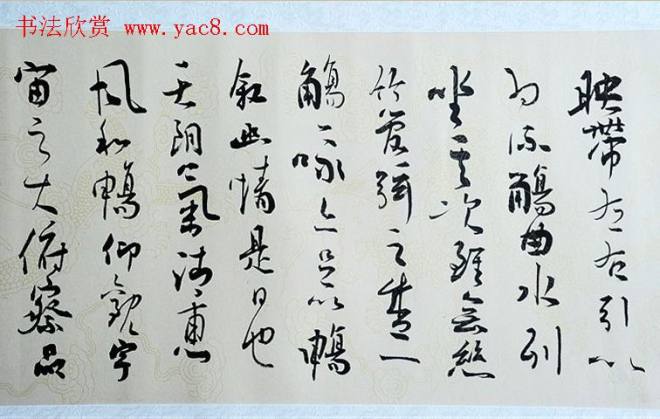 书法欣赏 www.yac8.com
映帶左右引以
為流觴曲水列
坐其次雖無絲
竹管弦之盛一
觴一咏亦足以暢
敘幽情是日也
天朗氣清惠
風和暢仰觀宇
宙之大俯察品